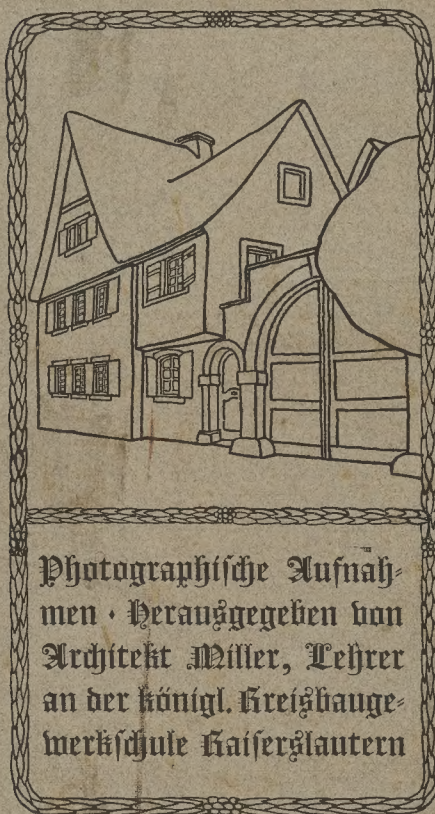 Photographische Aufnah-
men · Herausgegeben von
Architekt Miller, Lehrer
an der königl. Kreisbauge-
werkschule Kaiserslautern